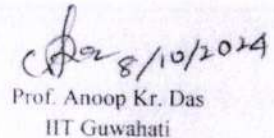 8/10/2024
Prof. Anoop Kr. Das
IIT Guwahati